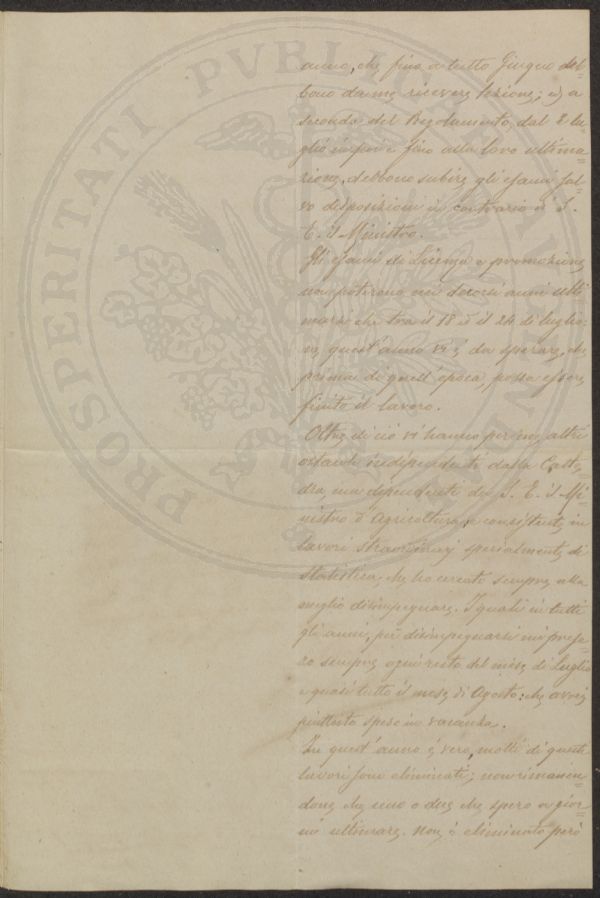 PROSPERITATI PVBLICAE AVGENDAE
anno, che fino a tutto Giugno deb=
bono da me ricevere lezione; ed a
seconda del Regolamento, dal 2 lu=
glio in poi e fino alla loro ultima=
zione, debbono subire gli esami sal=
vo disposizioni in contrario di S.
E. il Ministro.
Gli esami di Licenza e promozione
non poterono nei decorsi anni ulti
marsi che tra il 18 ed il 24 di luglio:
nè quest'anno vi è da sperare, che
prima di quell'epoca possa essere
finito il lavoro.
Oltre di ciò vi hanno per me altri
ostacoli indipendenti dalla Catte
dra, ma dipendenti da S. E. il Mi=
nistro d'Agricoltura, e consistenti in
lavori straordinarj specialmente di
Statistica, che ho cercato sempre alla
meglio disimpegnare. I quali in tutti
gli anni, per disimpegnarli mi prese=
ro sempre ogni resto del mese di Luglio
e quasi tutto il mese di Agosto: che avrei
piuttosto speso in vacanza.
In quest'anno è vero, molti di questi
lavori sono eliminati; non rimanen=
done che uno o due che spero a gior=
ni ultimare. Non è eliminato però